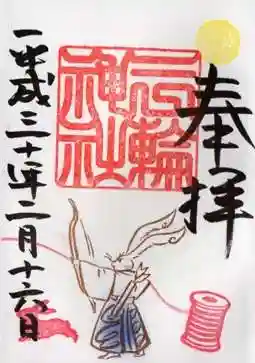 奉拝
三輪
神社
平成三十年二月十六日